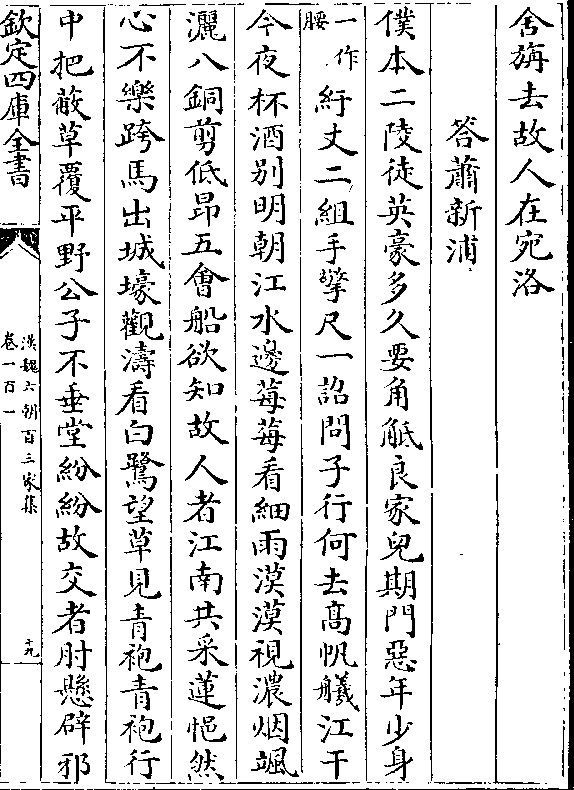 舍旃去故人在宛洛
答蕭新浦
僕本二陵徒英豪多久要角觝良家兒期門惡年少身
一作腰紆丈二組手擎尺一詔問子行何去高帆艤江干
今夜杯酒别明朝江水邊莓莓看細雨漠漠視濃烟颯
灑八銅剪低昂五會船欲知故人者江南共采蓮悒然
心不樂跨馬出城壕觀濤看白鷺望草見青袍青袍行
中把蔽草覆平野公子不垂堂紛紛故交者肘懸辟邪
欽定四庫全書
漢魏六朝百三家集
卷一百一
十九